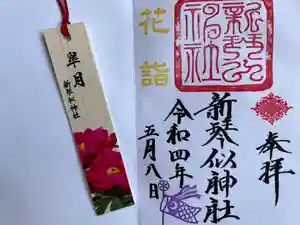 皐月
新琴似神社
花詣
奉拝
新琴似神社
令和四年
五月八日